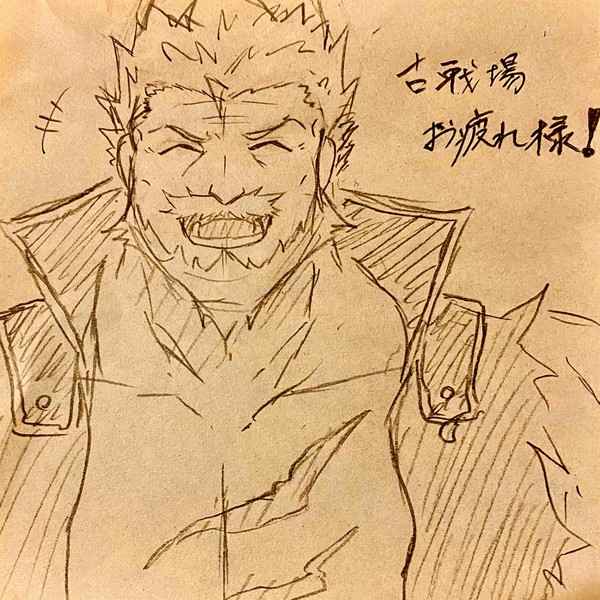 古戦場
お疲れ様!